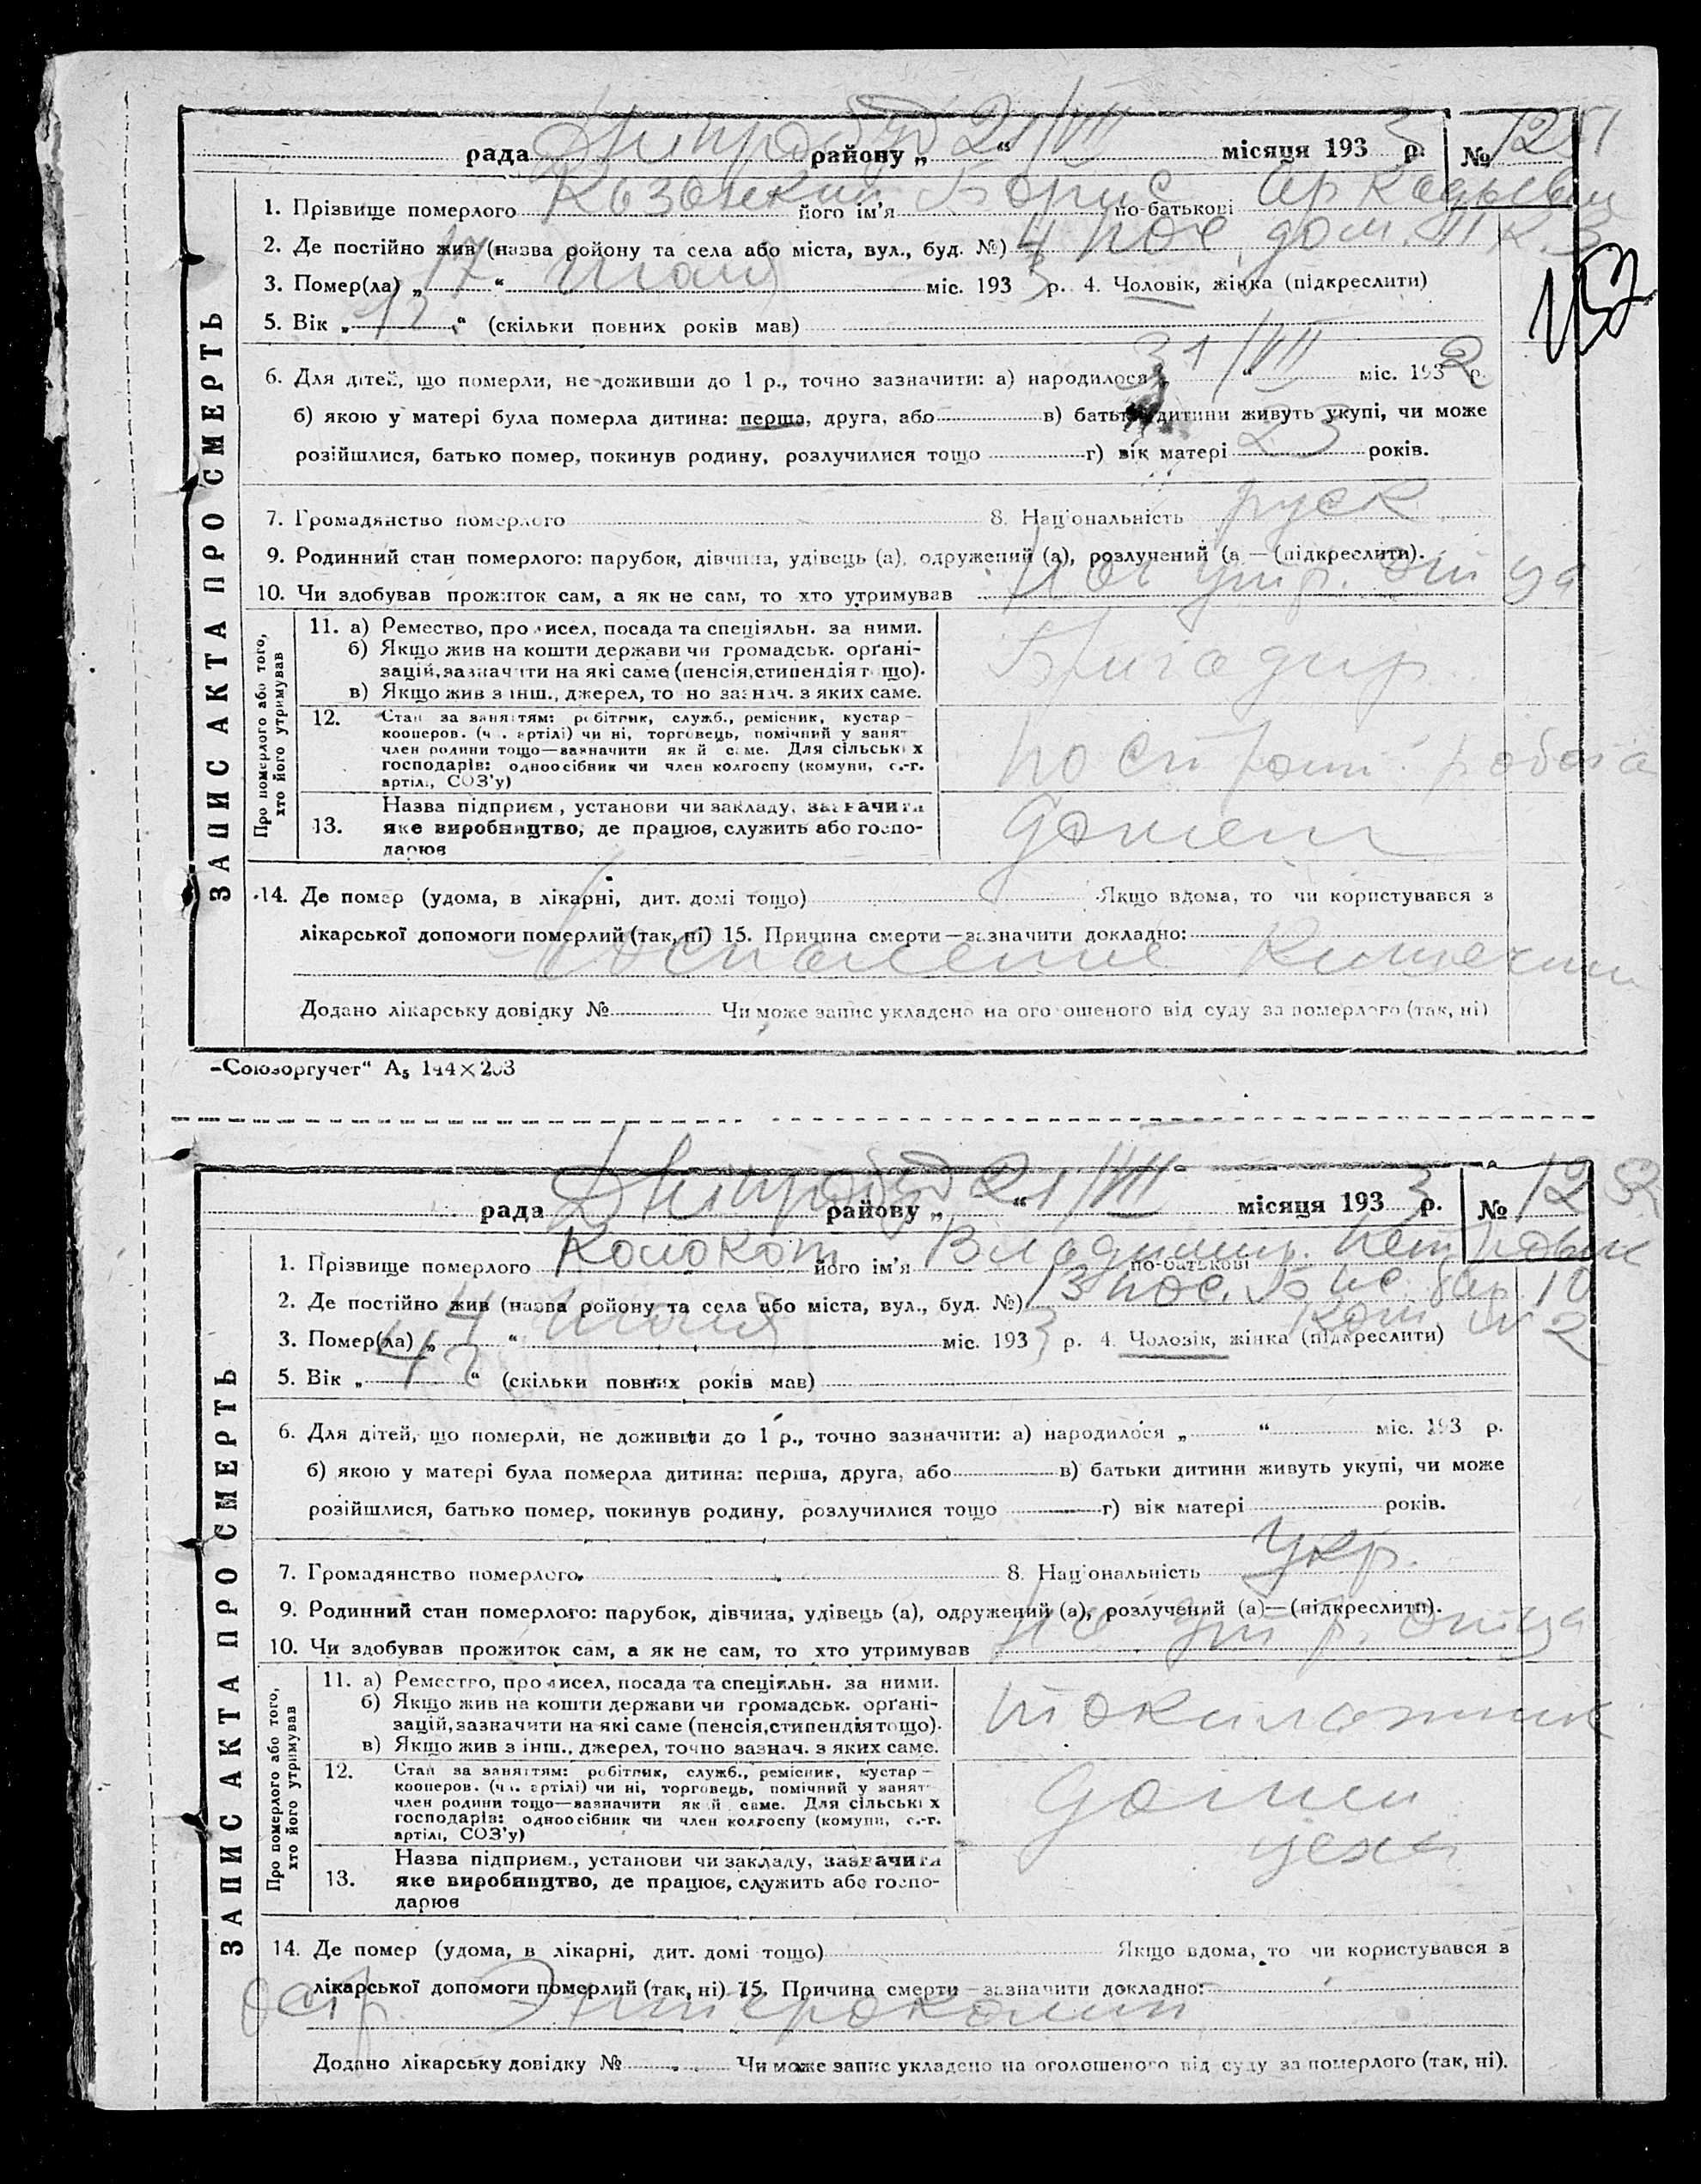 рада Дніпробуд району „ 21/VII “ місяця 193 3 р. № 1251
1. Прізвище померлого його ім'я Борис по-батькові Аркадьевич
2. Де постійно жив (назва ройону та села або міста, вул., буд. №) 4 пос. дом. к. 3
3. Помер(ла) „ 17 “ міс. 193 3 р. 4. Чоловік, жінка (підкреслити)
157
5. Вік „ “ (скільки повних років мав)
6. Для дітей, що померли, не доживши до 1 р., точно зазначити: а) народилося „ 31/VII “ міс. 193 2 р.
б) якою у матері була померла дитина: перша, друга, або в) батьки дитини живуть укупі, чи може
розійшлися, батько помер, покинув родину, розлучилися тощо г) вік матері 23 років.
7. Громадянство померлого 8. Національність руск
9. Родинний стан померлого: парубок, дівчина, удівець (а), одружений (а), розлучений (а — (підкреслити).
10. Чи здобував прожиток сам, а як не сам, то хто утримував На утр. отца
ЗАПИС АКТА ПРО СМЕРТЬ
Про померлого або того, хто його утримував
11. а) Ремество, промисел, посада та спеціяльн. за ними.
б) Якщо жив на кошти держави чи громадськ. орґані-
зацій, зазначити на які саме (пенсія, стипендія тощо).
в) Якщо жив з інш., джерел, точно зазнач. з яких саме.
Бригадир
12. Стан за заняттям: робітник, служб., ремісник, кустар —
кооперов. (чл. артілі) чи ні, торговець, помічний у занят
член родини тощо—зазначити як й саме. Для сільських
господарів: одноосібник чи член колгоспу (комуни, с.-г.
артілі, СОЗ'у)
робота
13. Назва підприєм., установи чи закладу, зазначити
яке виробництво, де працює, служить або госпо-
дарює
14. Де помер (удома, в лікарні, дит. домі тощо) Якщо вдома, то чи користувався з
лікарської допомоги померлий (так, ні) 15. Причина смерти—зазначити докладно:
Воспаление Кишечник
Додано лікарську довідку № Чи може запис укладено на оголошеного від суду за померлого (так, ні)
„Союзоргучет“ А5 144×203
рада Дніпробуд району „ 21/VII “ місяця 193 3 р. № 1252
1. Прізвище померлого його ім'я Владимир по-батькові
2. Де постійно жив (назва ройону та села або міста, вул., буд. №) 13 пос. бар. 10
ком № 2
3. Помер(ла) „ 4 “ міс. 193 3 р. 4. Чоловік, жінка (підкреслити)
5. Вік „ “ (скільки повних років мав)
6. Для дітей, що померли, не доживши до 1 р., точно зазначити: а) народилося „ “ міс. 193 р.
б) якою у матері була померла дитина: перша, друга, або в) батьки дитини живуть укупі, чи може
розійшлися, батько помер, покинув родину, розлучилися тощо г) вік матері років.
7. Громадянство померлого 8. Національність Укр.
9. Родинний стан померлого: парубок, дівчина, удівець (а), одружений (а), розлучений (а)—(підкреслити).
10. Чи здобував прожиток сам, а як не сам, то хто утримував На утр. отца
ЗАПИС АКТА ПРО СМЕРТЬ
Про померлого або того, хто його утримував
11. а) Ремество, промисел, посада та спеціяльн. за ними.
б) Якщо жив на кошти держави чи громадськ. орґані-
зацій, зазначити на які саме (пенсія, стипендія тощо).
в) Якщо жив з інш., джерел, точно зазнач. з яких саме.
12. Стан за заняттям: робітник, служб., ремісник, кустар —
кооперов. (чл. артілі) чи ні, торговець, помічний у занят
член родини тощо—зазначити як й саме. Для сільських
господарів: одноосібник чи член колгоспу (комуни, с.-г.
артілі, СОЗ'у)
цеха
13. Назва підприєм., установи чи закладу, зазначити
яке виробництво, де працює, служить або госпо-
дарює
14. Де помер (удома, в лікарні, дит. домі тощо) Якщо вдома, то чи користувався з
лікарської допомоги померлий (так, ні) 15. Причина смерти—зазначити докладно:
Остр. Энтероколит
Додано лікарську довідку № Чи може запис укладено на оголошеного від суду за померлого (так, ні).